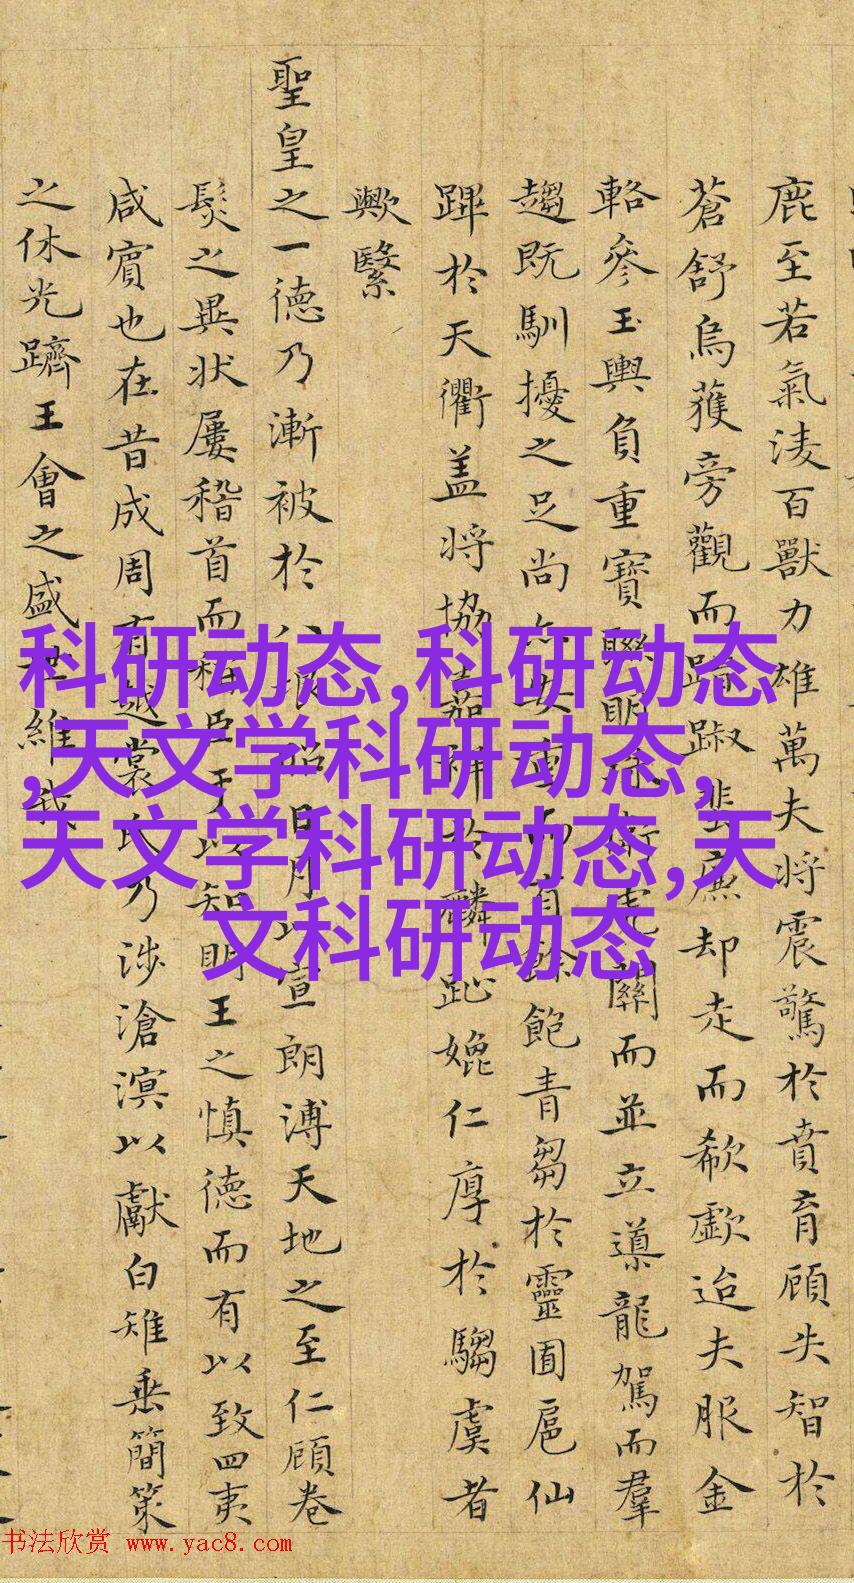 鹿至若氣淩百獸力雄萬夫將震驚於賁育顧失智於
蒼舒烏獲旁觀而踧蜚廉却走而欷歔迨夫服金
輅參玉輿負重寶聯明關而並立導龍駕而羣
趨既馴擾之足尚而有餘飽青芻於靈囿扈仙
蹕於天衢蓋將協嘉祥於麟趾媲仁厚於騶虞者
歟繄
聖皇之一德乃漸被於日月以宣朗溥天地之至仁顧卷
髮之異狀屢稽首而稱臣于以知明王之慎德而有以致四夷
咸賓也在昔成周有越裳氏乃涉滄溟以獻白雉垂簡策
之休光躋王會之盛世維我
科研动态,科研动态
,天文学科研动态,
天文学科研动态,天
文科研动态
书法欣赏 www.yac8.com